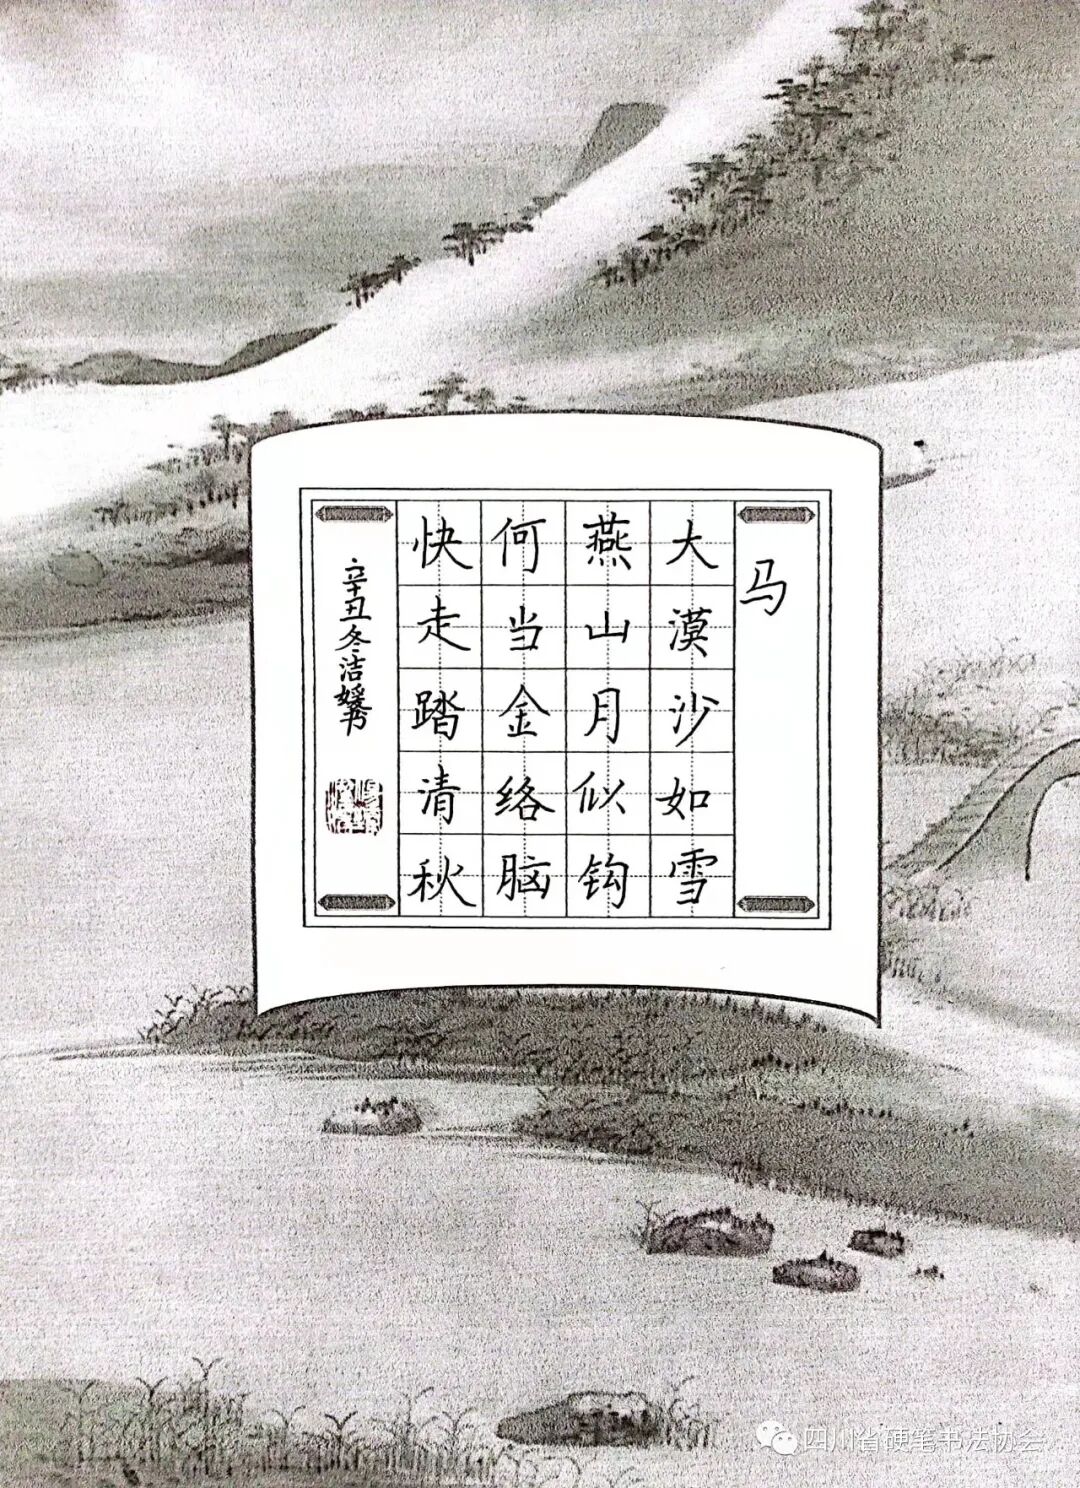 马
大漠沙如雪
燕山月似钩
何当金络脑
快走踏清秋
辛丑冬洁媛书
四川省硬笔书法协会